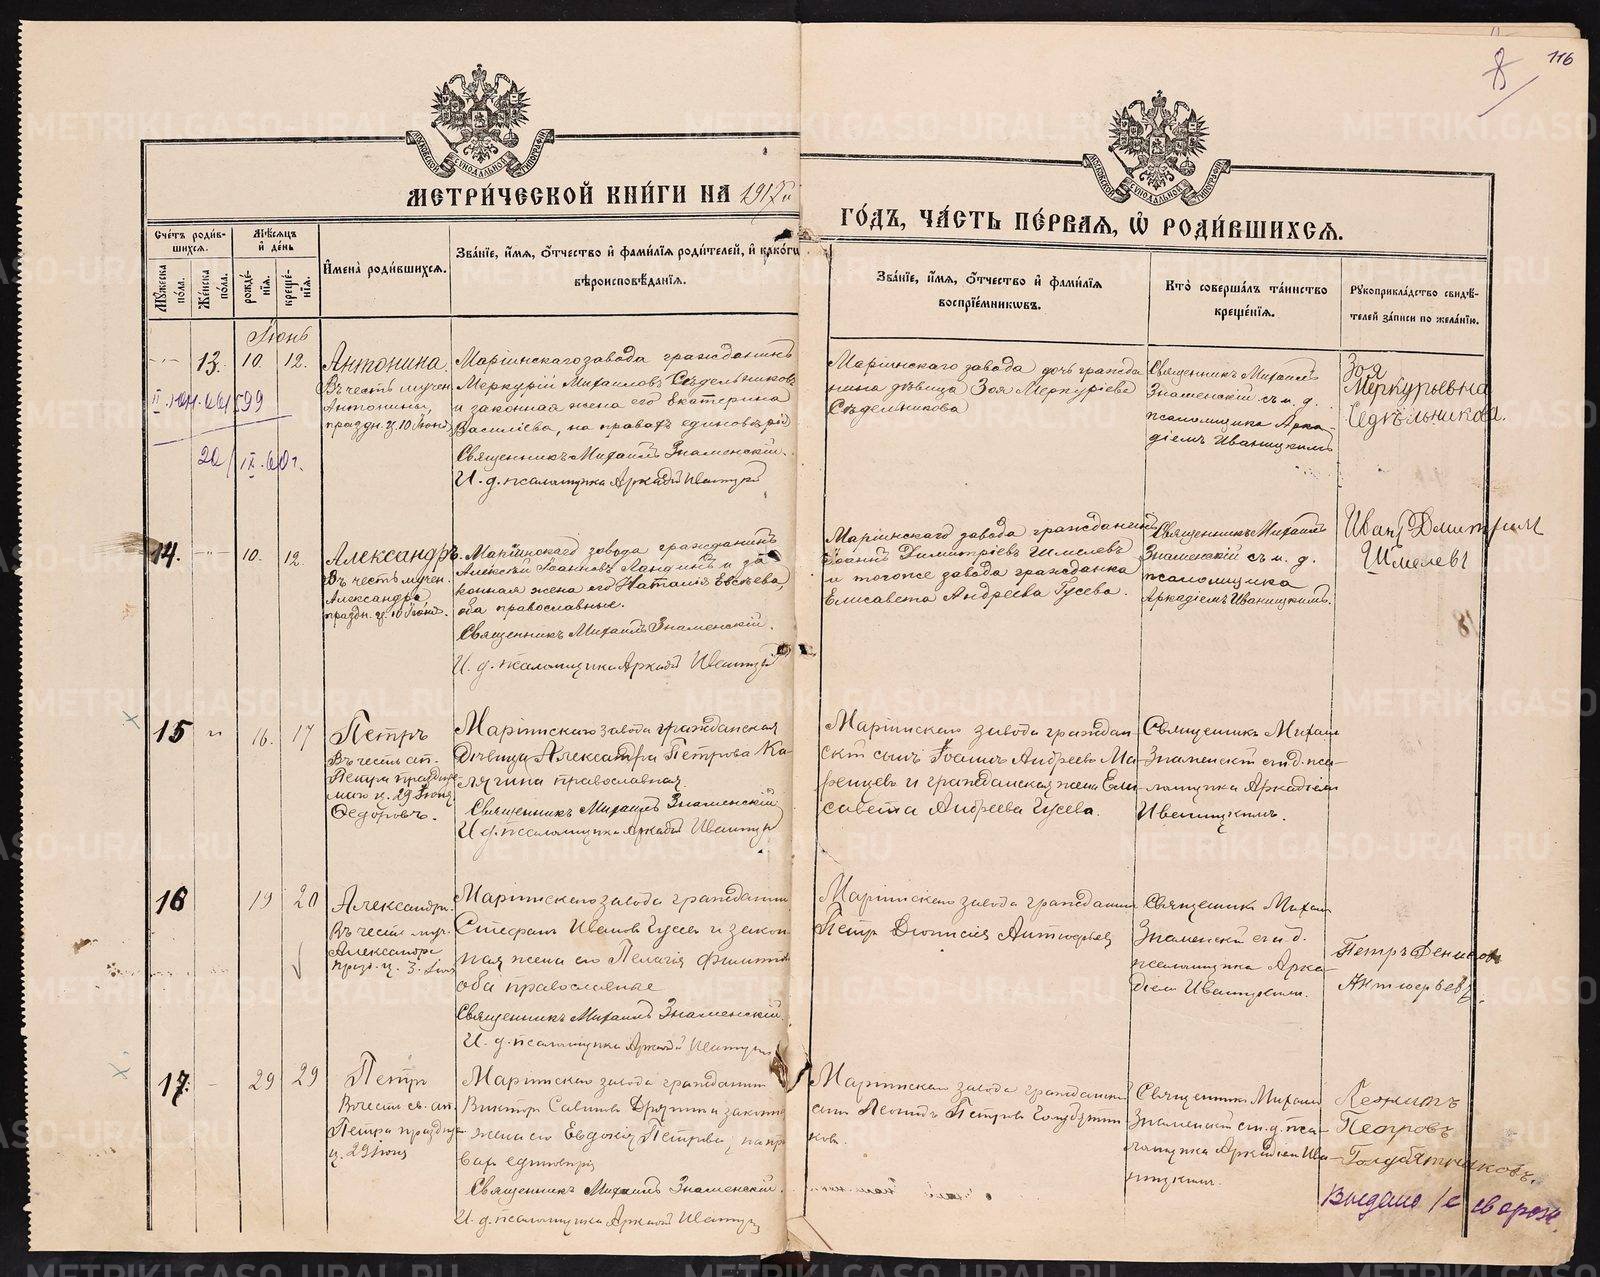 116
8
МЕТРИ́ЧЕСКОЙ КНИ́ГИ НА 1917й
ГО́ДЪ, ЧА́СТЬ ПЕ́РВАѦ, Ѡ РОДИ́ВШИХСѦ.
Сче́тъ роди́вшихсѧ.
Мꙋ́жеска по́ла.
Же́нска по́ла.
Мѣ́сѧцъ и҆ де́нь
рожде́нїѧ.
креще́нїѧ.
И҆мена̀ роди́вшихсѧ.
Зва́нїе, и҆́мѧ, ѻ҆́тчество и҆ фами́лїѧ роди́телей, и҆ како́гѡ
вѣроисповѣ́данїѧ.
Зва́нїе, и҆́мѧ, ѻ҆́тчество и҆ фами́лїѧ
воспрїе́мникѡвъ.
Кто̀ соверша́лъ та́инство
креще́нїѧ.
Рꙋкоприкла́дство свидѣ́-
телей за́писи по жела́нїю.
Іюнь
13. 10. 12.
Антонина.
Въ честь мучен.
Антонины,
праздн. ц. 10 Іюня
Маріинскаго завода гражданинъ
Меркурій Михаиловъ Сѣдельниковъ
и законная жена его Екатерина
Василіева, на правахъ единовѣрія
Священникъ Михаилъ Знаменскій.
И. д. псаломщика Аркадій
Маріинскаго завода дочь гражда
нина дѣвица Зоя Меркуріева
Сѣдельникова
Священникъ Михаилъ
Знаменскій съ и. д.
псаломщика Арка-
діемъ Иваницкимъ
Зоя
Меркурьевна
Седѣльникова.
14. 10. 12
Александръ.
Въ честь мучен.
Александра
праздн. ц. 10 Іюня.
Маріинскаго завода гражданинъ
Алексѣй Іоанновъ и за
конная жена его Наталія Евсѣева,
оба православные.
Священникъ Михаилъ Знаменскій.
И. д. псаломщика Аркадій
Маріинскаго завода гражданинъ
Іоаннъ Димитріевъ Шмелевъ
и тогоже завода гражданка
Елисавета Андреева Гусева.
Священникъ Михаилъ
Знаменскій съ и. д.
псаломщика
Аркадіемъ Иваницкимъ.
Иванъ Дмитріи
Шмелевъ
15 16. 17
Петръ
Въ честь ап.
Петра праздну
маго ц. 29 Іюня
Ѳедоровъ.
Маріинскаго завода гражданская
Дѣвица Александра Петрова Ка-
лугина православная
Священникъ Михаилъ Знаменскій
И. д. псаломщика Аркадій
Маріинскаго завода граждан
скій сынъ Іоаннъ Андреевъ Ма-
ренцевъ и гражданская жена Ели-
савета Андреева Гусева.
Священникъ Михаилъ
Знаменскій съ и. д. пса-
ломщика Аркадіемъ
Иваницкимъ.
16 19 20
Александра.
Въ честь муч.
Александры
Маріинскаго завода гражданинъ
Стефанъ Ивановъ Гусевъ и закон
ная жена его Пелагія
оба православные
Священникъ Михаилъ Знаменскій
И. д. псаломщика Аркадій
Маріинскаго завода гражданинъ
Петръ Діонисіевъ
Священникъ Михаилъ
Знаменскій съ и. д.
псаломщика Арка-
діемъ Иваницкимъ.
Петръ Денисовъ
17. 29 29
Петръ
Въ честь св. ап.
Петра праздну
ц. 29 іюня
Маріинскаго завода гражданинъ
Викторъ Савиновъ и законна
жена его Евдокія Петрова, на пра
вахъ единовѣрія
Священникъ Михаилъ Знаменскій.
И. д. псаломщика Аркадій
Маріинскаго завода гражданскій
сынъ Леонидъ Петровъ
ковъ.
Священникъ Михаилъ
Знаменскій съ и. д. пса-
ломщика Аркадіемъ Ива-
ницкимъ.
Петровъ
METRIKI.GASO-URAL.RU